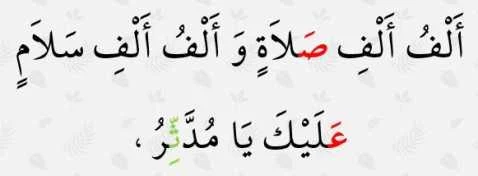 أَلْفُ أَلْفِ صَلَاةٍ وَ أَلْفُ أَلْفِ سَلَامٍ
عَلَيْكَ يَا مُدَّثِّرُ ،